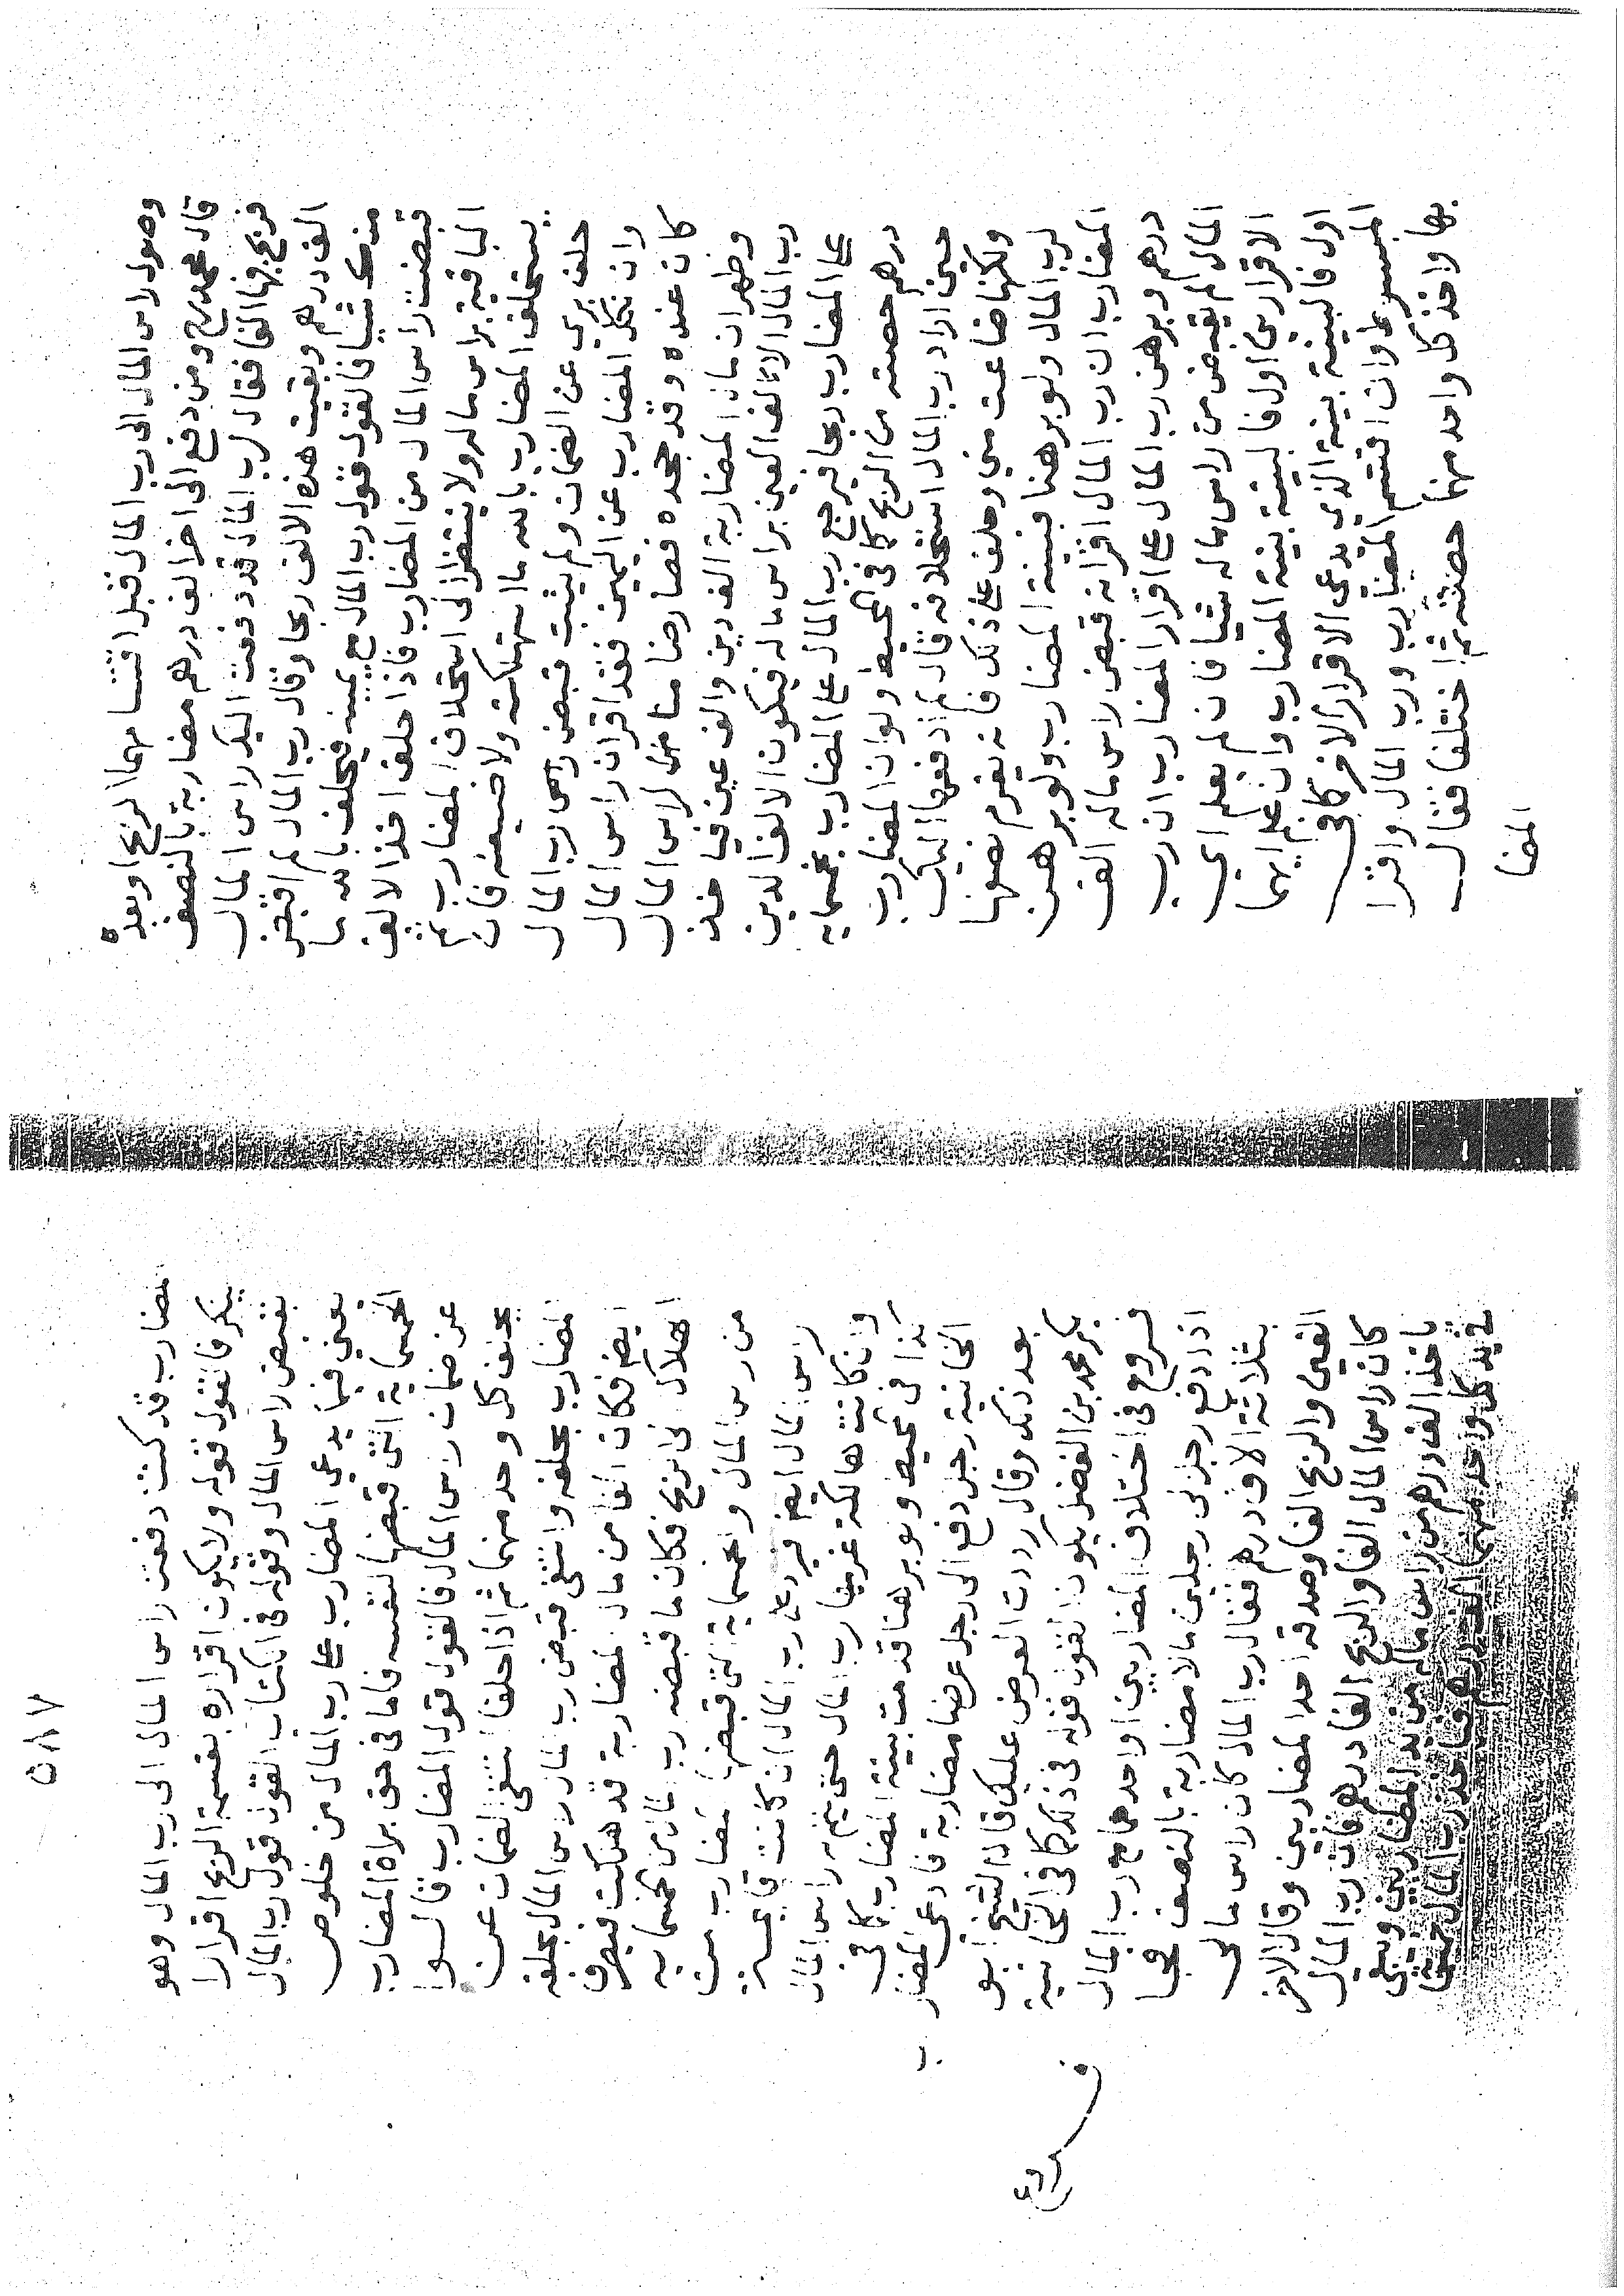 وصول راس المال الى رب المال قبل اقتسامهما الربح او بعده
قال محمد رح ومن دفع الى اخر الف درهم مضاربة بالنصف
فربح فيها الفا فقال رب المال قد دفعت اليك راس المال
الف درهم وبقيت هذه الالف ربحا وقال رب المال لم اقبض
منك شيا فالقول قول رب المال مع يمينه فيحلف بالله ما
قبضت راس المال من المضارب فاذا حلف اخذ الالف
الباقية براس ماله ولا ينتظر الى استحلاف المضارب ثم
يستحلف المضارب بالله ما استهلكته ولا ضيعته فان
حلف بري عن الضمان ولم يثبت قبض راس رب المال
وان نكل المضارب عن اليمين فقد اقر ان راس المال
كان عنده وقد جحده فصار ضامنا لراس المال
وظهر ان مال المضاربة الف دين والف عين فياخذ
رب المال الالف العين براس ماله فيكون الالف الدين
على المضارب ربحا فيرجع رب المال على المضارب بخمسماية
درهم حصته من الربح كما في المحيط ولو ان المضارب
حين اراد رب المال استحلافه قال لم ادفعها اليك
ولكنها ضاعت مني وحلف على ذلك فانه يغرم نصفها
لرب المال ولو برهنا فبينة المضارب ولو برهن
المضارب ان رب المال اقر انه قبض راس ماله الف
درهم وبرهن رب المال على اقرار المضارب ان رب
المال لم يقبض من راس ماله شيا فان لم يعلم اي
الاقرارين اول فالبينة بينة المضارب وان علم ايهما
اول فالبينة بينة الذي يدعي الاقرار الاخر كما في
المبسوط وان اقتسم المضارب ورب المال واقرا
بها واخذ كل واحد منهما حصته ثم اختلفا فقال
المضا
٥٨٧
المضارب قد كنت دفعت راس المال الى رب المال وهو
ينكر فالقول قوله ولا يكون اقراره بقسمة الربح اقرارا
بقبض راس المال وقوله في الكتاب القول قول رب المال
يعني فيما يدعي المضارب على رب المال من خلوص
الخمسماية التي قبضها لنفسه فاما في حق براة المضارب
عن ضمان راس المال فالقول قول المضارب قالوا
يحلف كل واحد منهما ثم اذا حلفا انتفى الضمان عن
المضارب بحلفه وانتفى قبض رب المال راس المال بحلفه
ايضا فكان الفا من مال المضاربة قد هلكت فيصرف
الهلاك الى الربح فكان ما قبضه رب المال من الخمسماية
من راس المال والخمسماية التي قبضها المضارب من
راس المال ايضا فيرد على رب المال ان كانت قايمة
وان كانت هالكة غرمها رب المال حتى يتم به راس المال
كذا في المحيط ولو برهنا قدمت بينة المضارب كما في
الخانية رجل دفع الى رجل عرضا مضاربة فادعى المضارب
بعد ذلك وقال رددت العرض عليك قال الشيخ ابو
بكر محمد بن الفضل يكون القول قوله في ذلك كما في الخانية
فروع في اختلاف المضاربين او احدهما مع رب المال
اذا دفع رجل الى رجلين مالا مضاربة بالنصف فجا
بثلاثة الاف درهم فقال رب المال كان راس مالي
الفين والربح الفا وصدقه احد المضاربين وقال الاخر
كان راس المال الفا والربح الفا درهم فان رب المال
ياخذ الف درهم من راس ماله من يد المضاربين ويبقى
في يد كل واحد منهما الف درهم فياخذ رب المال حينئذ
فروع